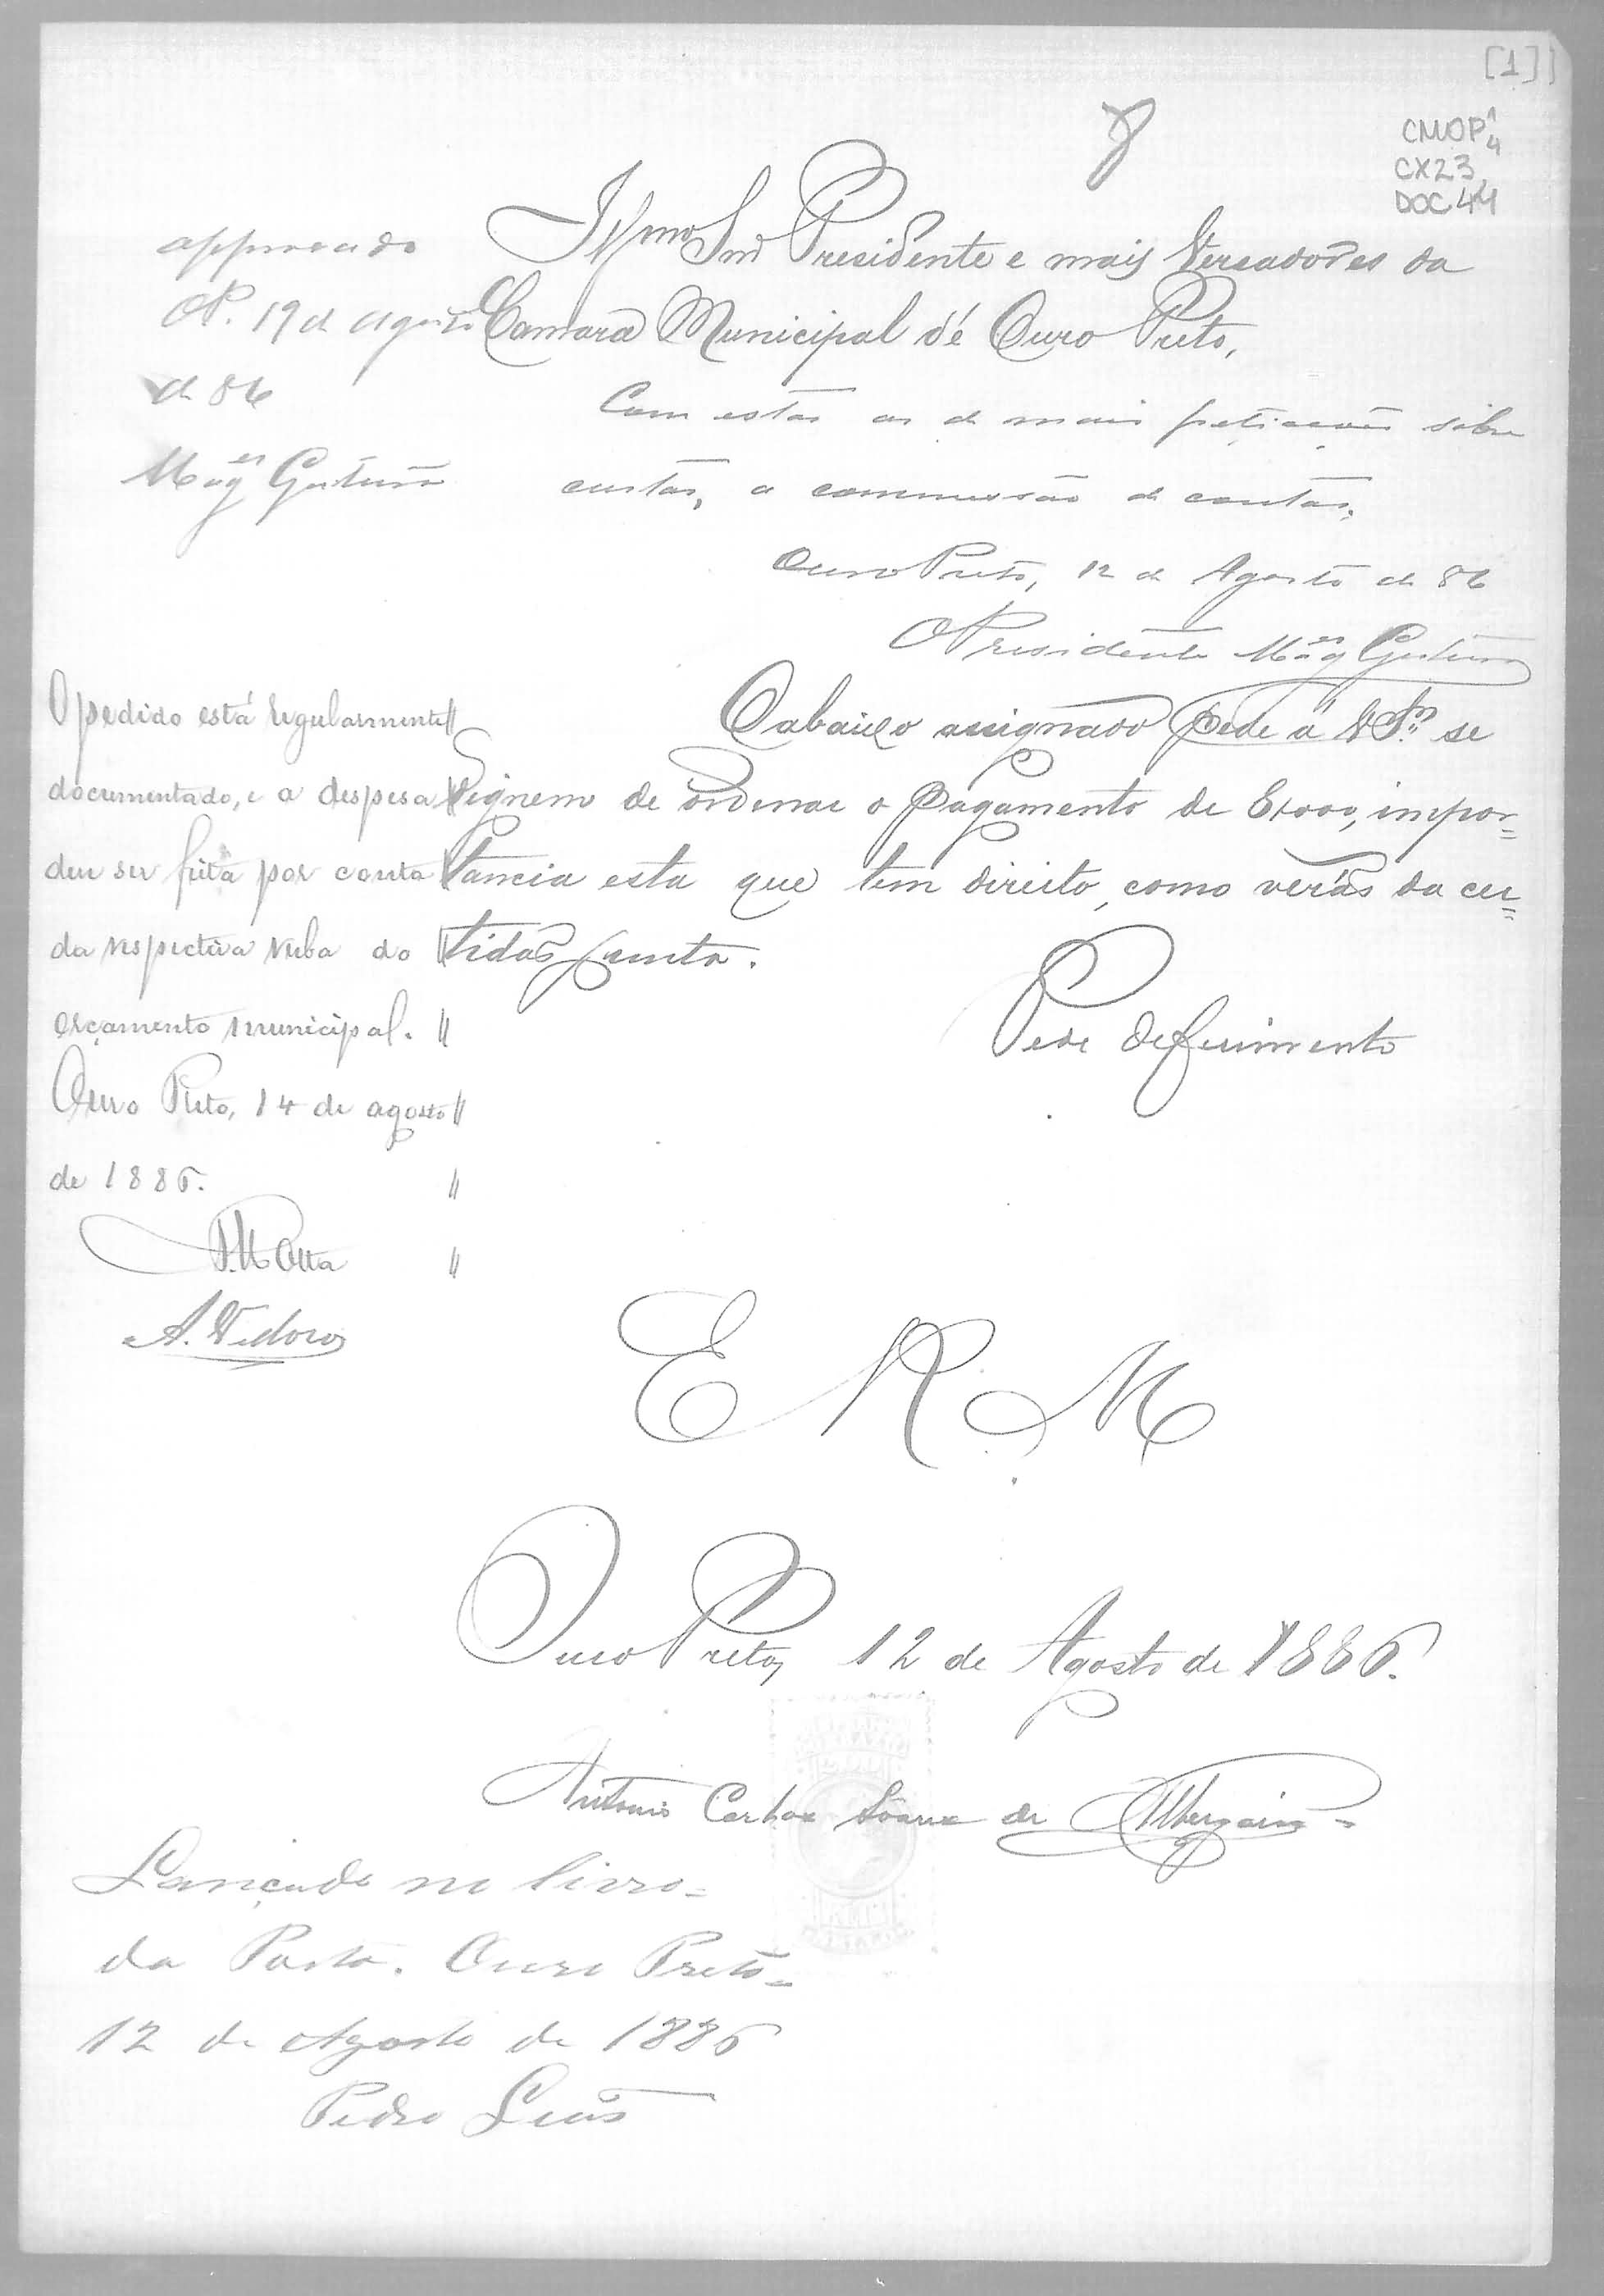 [1]
CMOP 1/4
CX23
DOC 44
approvado
O P. 19 de agosto
de 86
Illmo Snr Presidente e mais Vereadores da
Camara Municipal dé Ouro Preto,
Com estas as de mais petiçoens sobre
custas, a commissão de contas.
Ouro Preto, 12 de Agosto de 86
O Presidente
O pedido está regularmente
documentado, e a despesa
deu ser feita por conta
da respectiva verba do
orçamento municipal.
Ouro Preto, 14 de agosto
de 1886.
P. Motta
A.
O abaixo assignado pede a V.Sas se
dignem de ordenar o pagamento de 6$000, impor=
tancia esta que tem direito, como verás da cer=
tidão junta.
Pede deferimento
E R. M
Ouro Preto, 12 de Agosto de 1886.
Antonio Carlos Soares de Albergaria
Lançado no livro
da Porta. Ouro Preto
12 de Agosto de 1886
Pedro Leão